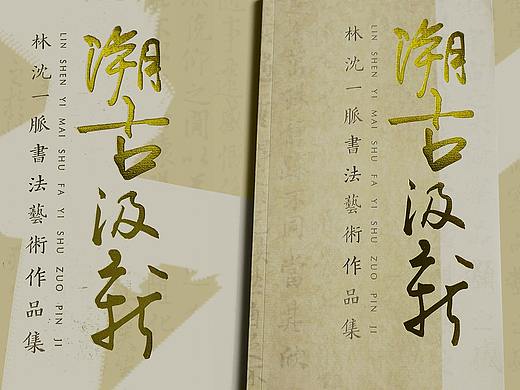 溯古汲新
LIN SHEN YI MAI SHU FA YI SHU ZUO PIN JI
林沈一脈書法藝術作品集
溯古汲新
LIN SHEN YI MAI SHU FA YI SHU ZUO PIN JI
林沈一脈書法藝術作品集